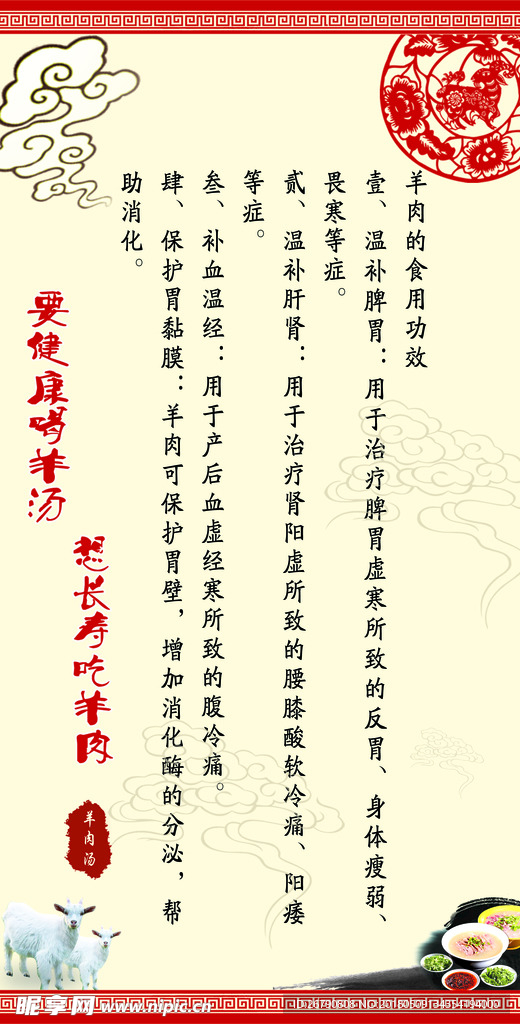 羊肉的食用功效
壹、温补脾胃：用于治疗脾胃虚寒所致的反胃、身体瘦弱、
畏寒等症。
贰、温补肝肾：用于治疗肾阳虚所致的腰膝酸软冷痛、阳痿
等症。
叁、补血温经：用于产后血虚经寒所致的腹冷痛。
肆、保护胃黏膜：羊肉可保护胃壁，增加消化酶的分泌，帮
助消化。
要健康喝羊汤
想长寿吃羊肉
羊肉汤
昵享网 www.nipic.cn